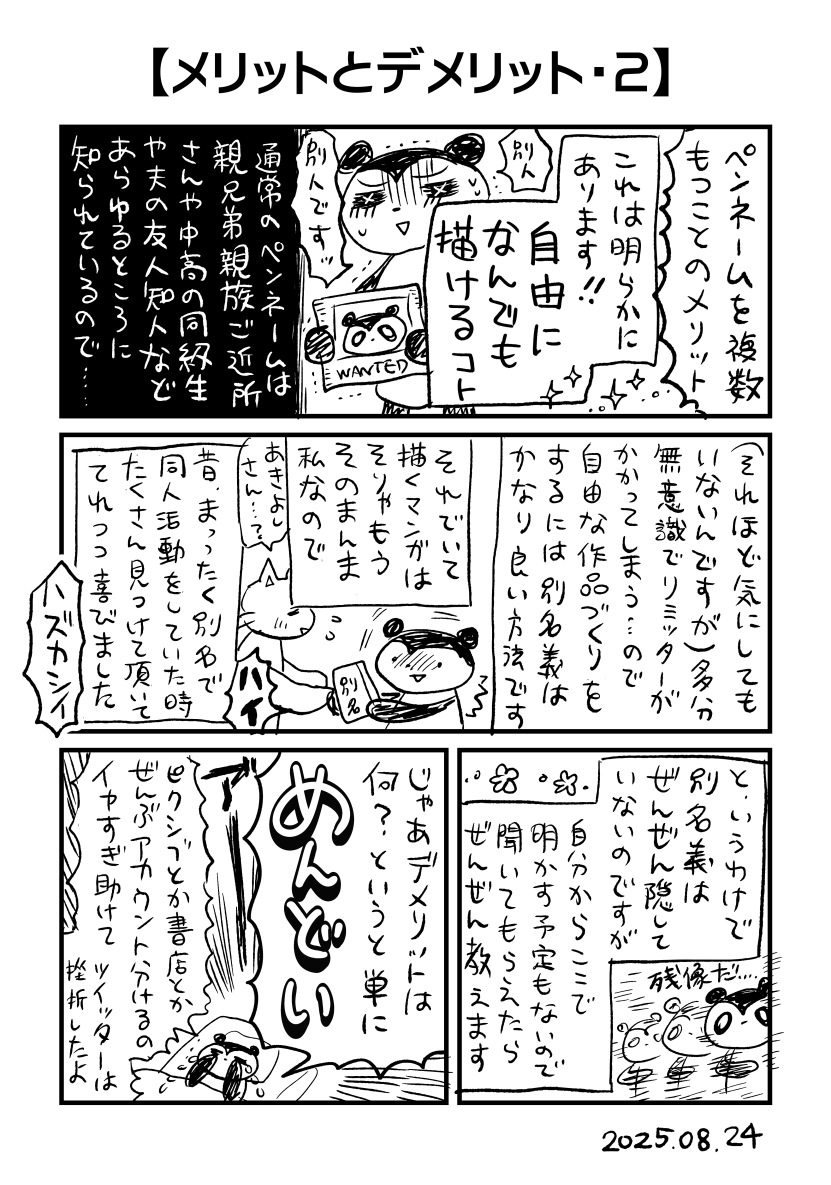 【メリットとデメリット・2】
ペンネームを複数
もつことのメリット
これは明らかに
あります!!
自由に
なんでも
描けるコト
別人
別人です
WANTED
通常のペンネームは
親兄弟親族ご近所
さんや中高の同級生
や夫の友人知人など
あらゆるところに
知られているので……
(それほど気にしても
いないんですが)多分
無意識でリミッターが
かかってしまう…ので
自由な作品づくりを
するには別名義は
かなり良い方法です
それでいて
描くマンガは
そりゃもう
そのまんま
私なので
あきよし
さん…?
別名
ハイ
昔、まったく別名で
同人活動をしていた時
たくさん見つけて頂いて
てれつつ喜びました
ハズカシイ
と、いうわけで
別名義は
ぜんぜん隠して
いないのですが
自分からここで
明かす予定もないので
聞いてもらえたら
ぜんぜん教えます
残像だ…
じゃあデメリットは
何?というと単に
めんどい
ピクシブとか書店とか
ぜんぶアカウント分けるの
イヤすぎ助けて
ツイッターは
挫折したよ
2025.08.24